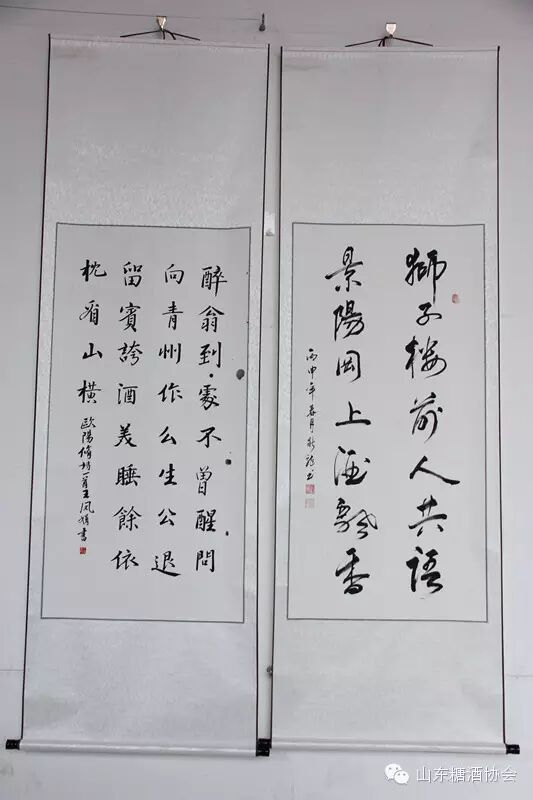 獅子楼前人共語
景陽岡上酒飄香
丙申年春月 书
醉翁到處不曾醒問
向青州作么生公退
留賓誇酒美睡餘依
枕看山橫
歐陽脩詩一首王凤娟書
山东糖酒协会